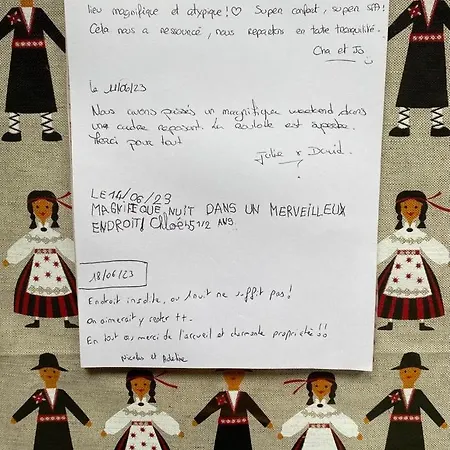 lieu magnifique et atypique !♡ Super confort, super SPA!
Cela nous a ressourcé, nous repartons en toute tranquilité.
Cha et Jo
Le 11/06/23
Nous avons passés un magnifique weekend dans
un cadre reposant. La est superbe.
Merci pour tout
Julie & David.
LE 14/06/23
MAGNIFIQUE NUIT DANS UN MERVEILLEUX
ENDROIT/ Chloé 5 1/2 ANS
18/06/23
Endroit insolite, où 1 nuit ne suffit pas!
On aimerait y rester ++
En tout cas merci de l'accueil et charmante propriété!!
Nicolas et Adeline